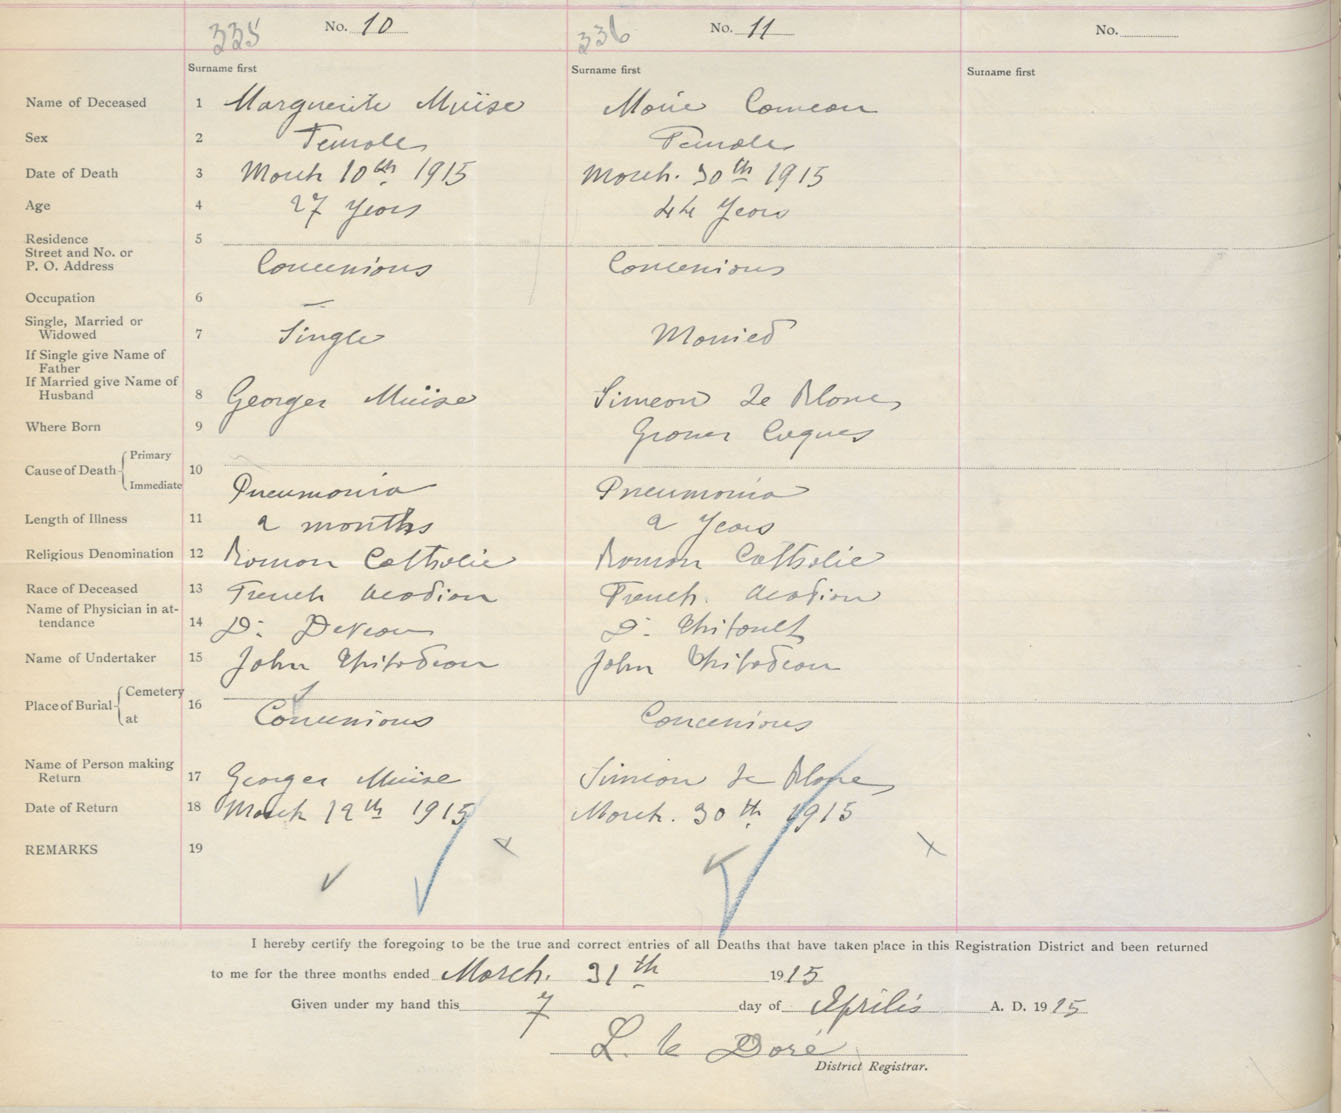 335 No. 10 336 No. 11 No.
Surname first Surname first Surname first
Name of Deceased 1 Marguerite Muïse Marie Comeau
Sex 2 Female Female
Date of Death 3 March 10th 1915 March. 30th 1915
Age 4 27 Years 44 Years
Residence 5
Street and No. or
P. O. Address Concenions Concenions
Occupation 6 —
Single, Married or
Widowed 7 Single Married
If Single give Name of
Father
If Married give Name of
Husband 8 Georges Muïse Simeon Le Blanc
Where Born 9 Grosses Coques
Cause of Death Primary 10
Immediate Pneumonia Pneumonia
Length of Illness 11 2 months 2 Years
Religious Denomination 12 Roman Catholic Roman Catholic
Race of Deceased 13 French Acadian French. Acadian
Name of Physician in at-
tendance 14 Dr Deveau Dr
Name of Undertaker 15 John Thibodeau John Thibodeau
Place of Burial Cemetery 16
at Concenions Concenions
Name of Person making
Return 17 Georges Muïse Simeon Le Blanc
Date of Return 18 March 12th 1915 March. 30th 1915
REMARKS 19
I hereby certify the foregoing to be the true and correct entries of all Deaths that have taken place in this Registration District and been returned
to me for the three months ended March. 31th 1915
Given under my hand this 7 day of Aprilis A. D. 1915
L. le Doré
District Registrar.